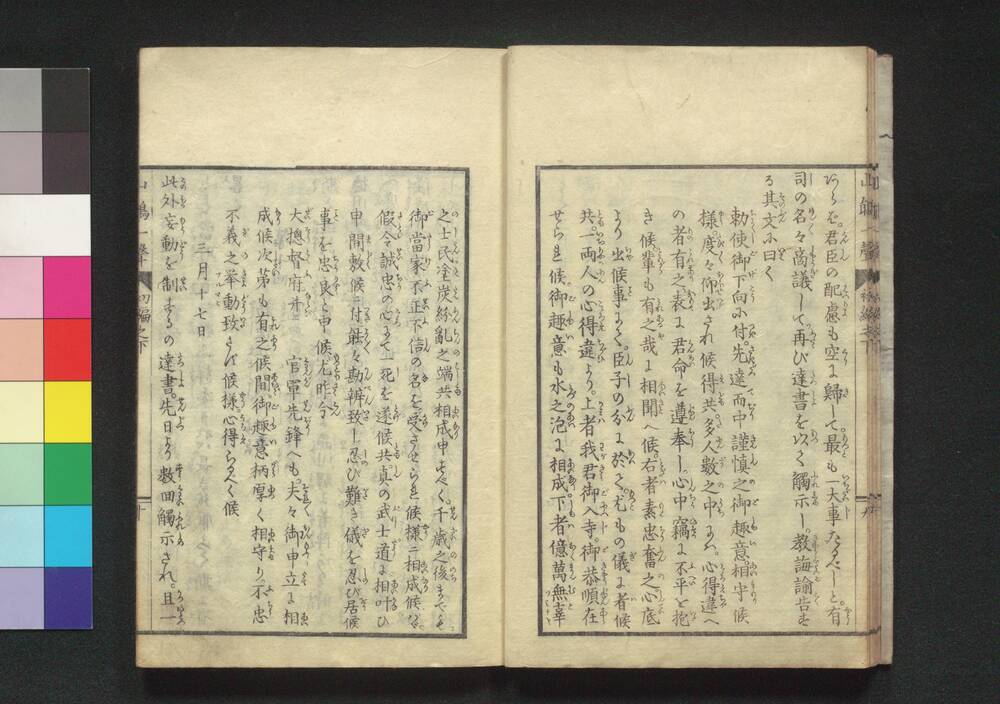 らざ君臣の配慮も空に歸して最も一大事たるべしと有
司の名々商議して再び達書を以く觸示し教誨諭告す
る其文に曰く
勅使御下向に付先達而中謹慎之御趣意相守候
様度々仰出され候得共多人數之中には心得違へ
の者有之表は君命を遵奉し心中竊に不平を抱
き候輩も有之哉に相聞へ候右者素忠奮之心底
より出候事にて臣子の分に於てさもの儀に者候
共一両人の心得違より上者我君御入寺御恭順在
せられ候御趣意も水之泡に相成下者億萬無辜
之士民塗炭紛亂之端共相成申べく千歳之後までも
御當家不正不信の名を受させられ候様ニ相成候はゞ
假令誠忠の心にて一死を遂候共真の武士道に相叶ひ
申間敷候ニ付能々勘辨致し忍び難き儀を忍び居候
事を忠良と申候尤昨今
大摠督府并ニ官軍先鋒へも夫々御申立に相
成候次第も有之候間御趣意柄厚く相守り不忠
不義之舉動致さゞ候様心得らるべく候
三月十七日
此外妄動を制するの達書先日より數回觸示され且一
山嶋一聲
初編之下
十